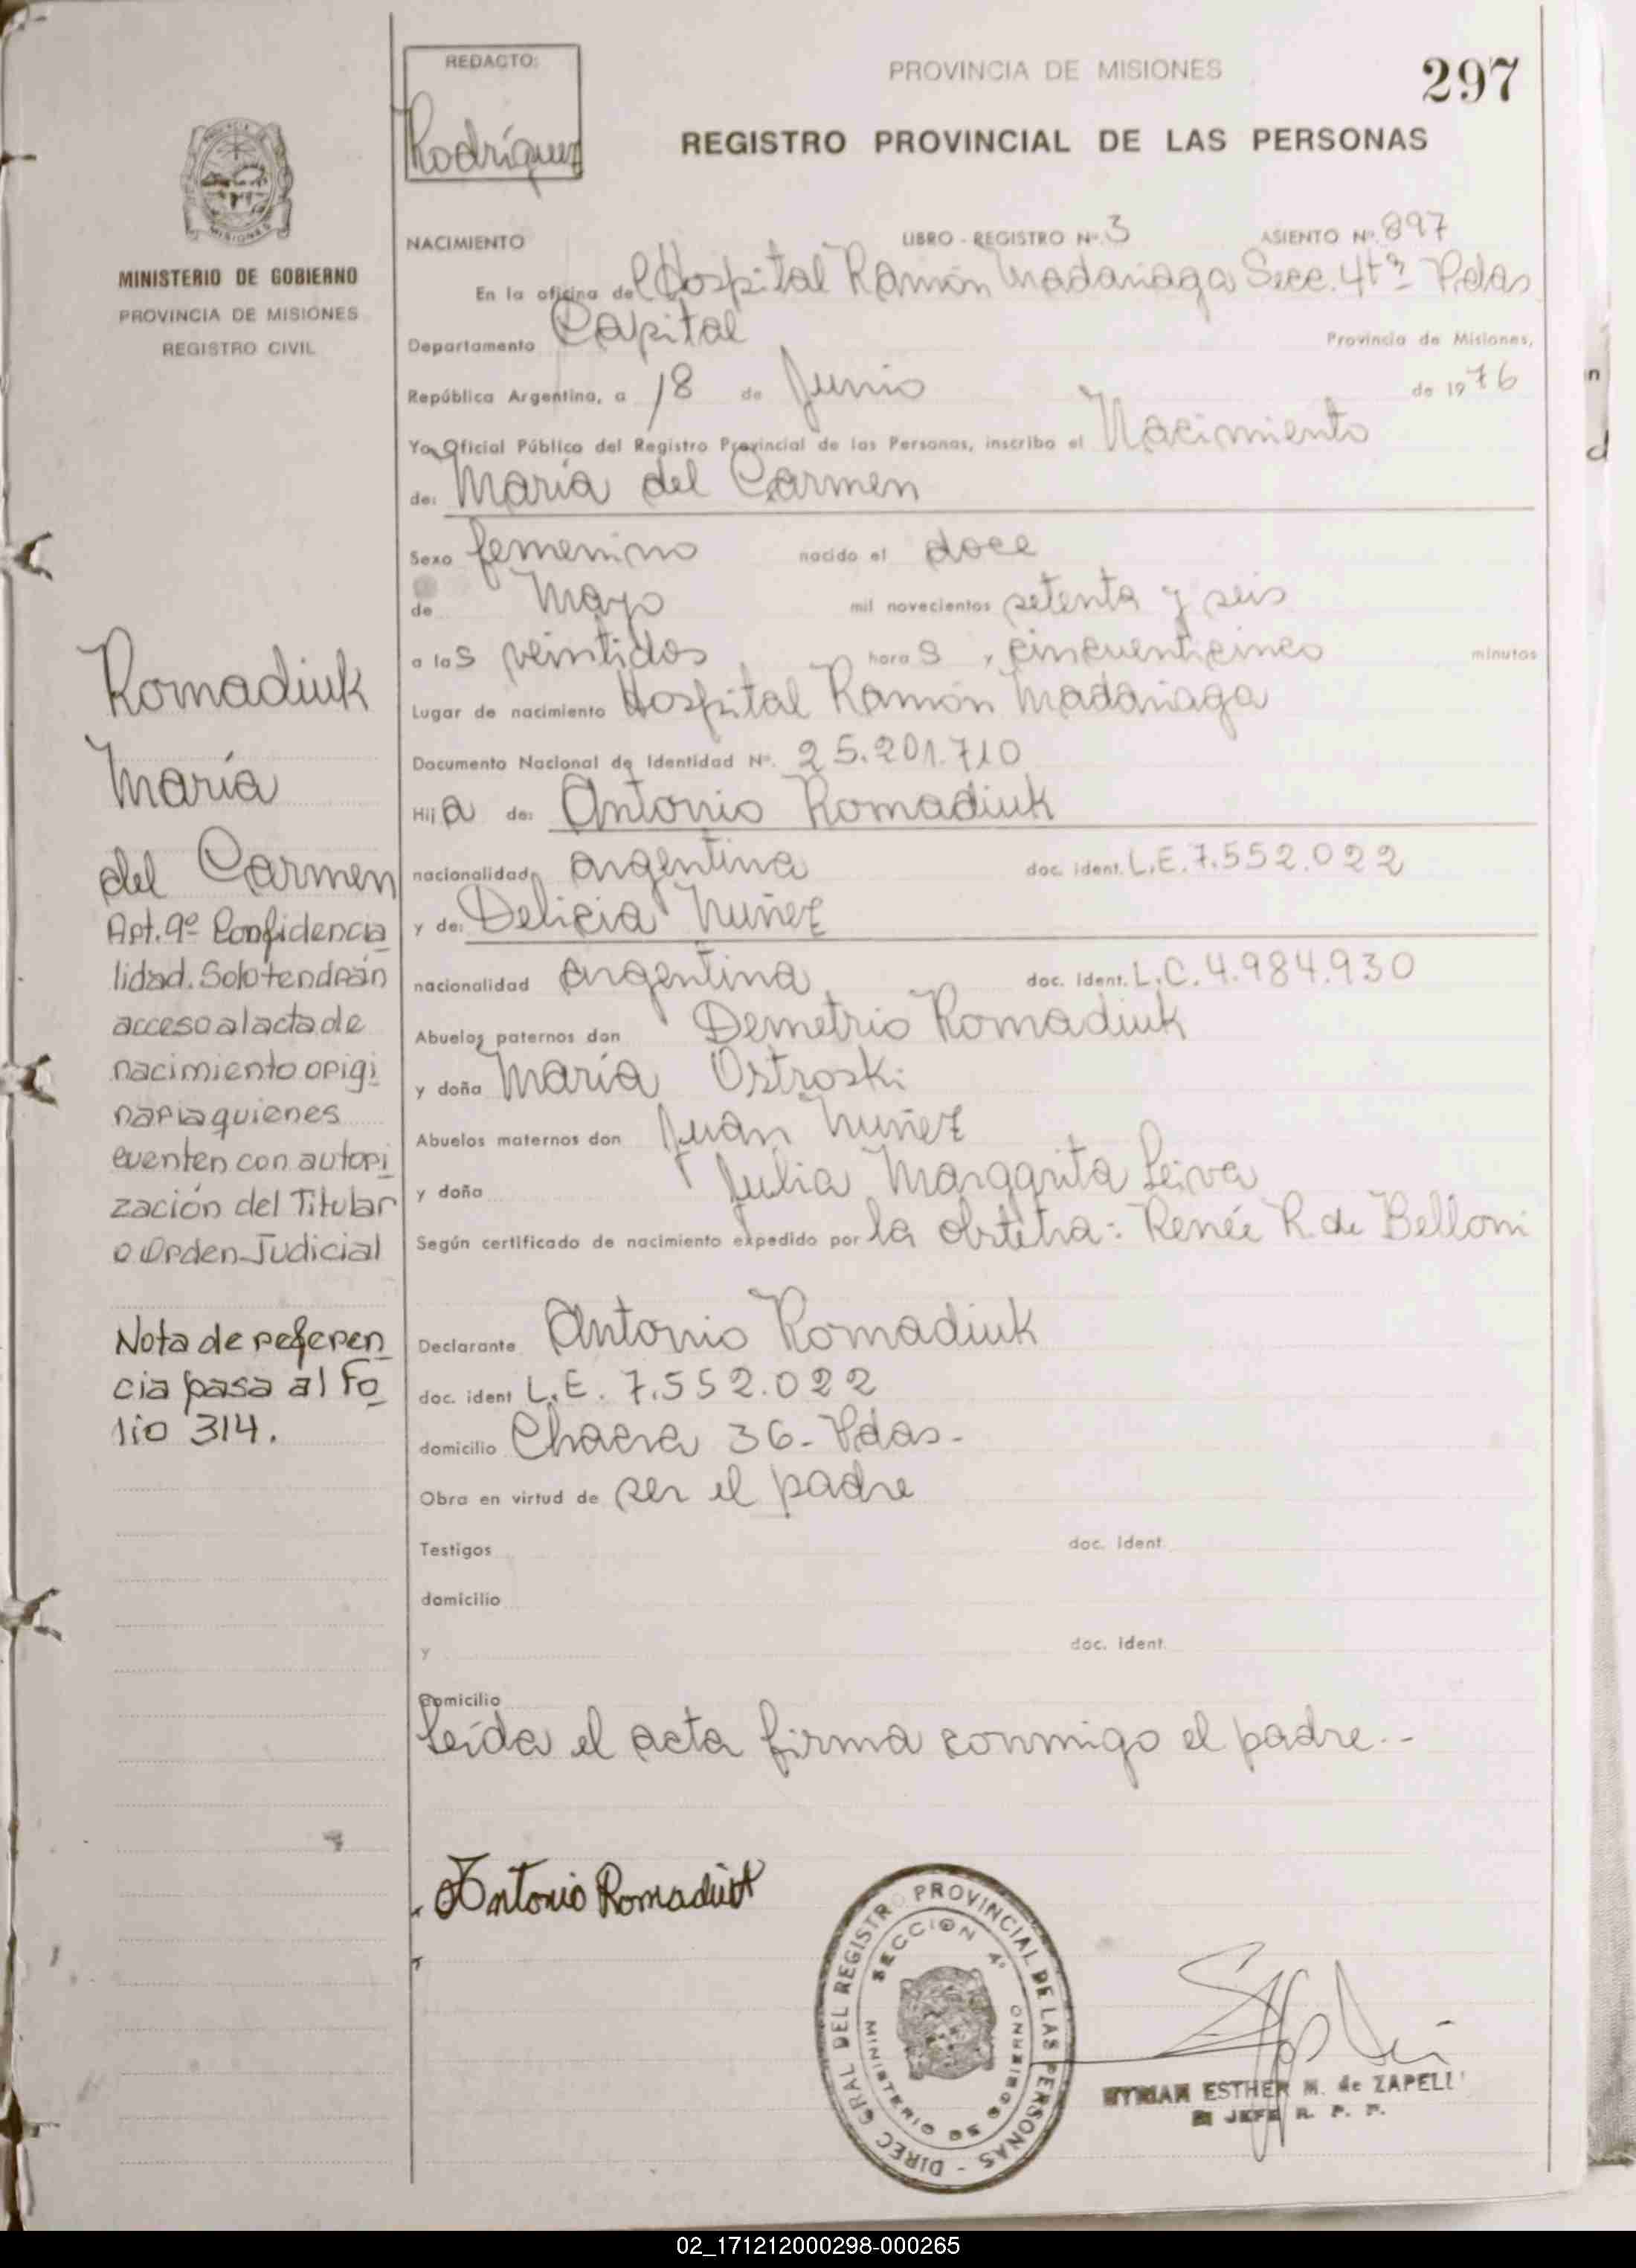 REDACTO:
Rodríguez
PROVINCIA DE MISIONES
297
REGISTRO PROVINCIAL DE LAS PERSONAS
MINISTERIO DE GOBIERNO
PROVINCIA DE MISIONES
REGISTRO CIVIL
NACIMIENTO LIBRO - REGISTRO Nº. 3 ASIENTO Nº. 897
En la oficina del Hospital Ramón Madariaga Secc. 4tª Pdas
Departamento Capital Provincia de Misiones,
República Argentina, a 18 de Junio de 1976
Yo, Oficial Público del Registro Provincial de las Personas, inscribo el Nacimiento
de: María del Carmen
Sexo femenino nacido el doce
de Mayo mil novecientos setenta y seis
a las veintidos horas y cincuenticinco minutos
Lugar de nacimiento Hospital Ramón Madariaga
Documento Nacional de Identidad Nº. 25.201.710
Hija de: Antonio Romadiuk
nacionalidad argentina doc. ident. L.E. 7.552.022
y de: Delicia Nuñez
nacionalidad argentina doc. ident. L.C. 4.984.930
Abuelos paternos don Demetrio Romadiuk
y doña María Ostroski
Abuelos maternos don Juan Nuñez
y doña Julia Margarita Leiva
Según certificado de nacimiento expedido por la obstetra: Renée R. de Belloni
Declarante Antonio Romadiuk
doc. ident L.E. 7.552.022
domicilio Chacra 36 - Pdas -
Obra en virtud de ser el padre
Testigos doc. ident.
domicilio
y doc. ident.
Domicilio
Leída el acta firma conmigo el padre.--
Romadiuk
María
del Carmen
Art. 9º Confidencia
lidad. Solo tendrán
acceso al acta de
nacimiento origi
naria quienes
cuenten con autori
zación del Titular
o Orden Judicial
Nota de referen
cia pasa al Fo
lio 314.
Antonio Romadiuk
DIREC GRAL DEL REGISTRO PROVINCIAL DE LAS PERSONAS -
SECCION 4ª
MINISTERIO DE GOBIERNO
MYRIAM ESTHER M. de ZAPELLI
JEFE R. P. P.
02_171212000298-000265